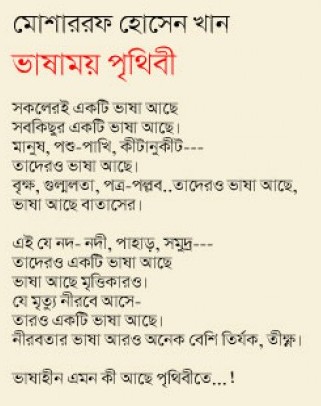 মোশাররফ হোসেন খান
ভাষাময় পৃথিবী
সকলেরই একটি ভাষা আছে
সবকিছুর একটি ভাষা আছে।
মানুষ, পশু-পাখি, কীটানুকীট---
তাদেরও ভাষা আছে।
বৃক্ষ, গুল্মলতা, পত্র-পল্লব..তাদেরও ভাষা আছে,
ভাষা আছে বাতাসের।
এই যে নদ- নদী, পাহাড়, সমুদ্র---
তাদেরও একটি ভাষা আছে
ভাষা আছে মৃত্তিকারও।
যে মৃত্যু নীরবে আসে-
তারও একটি ভাষা আছে।
নীরবতার ভাষা আরও অনেক বেশি তির্যক, তীক্ষ্ণ।
ভাষাহীন এমন কী আছে পৃথিবীতে...!